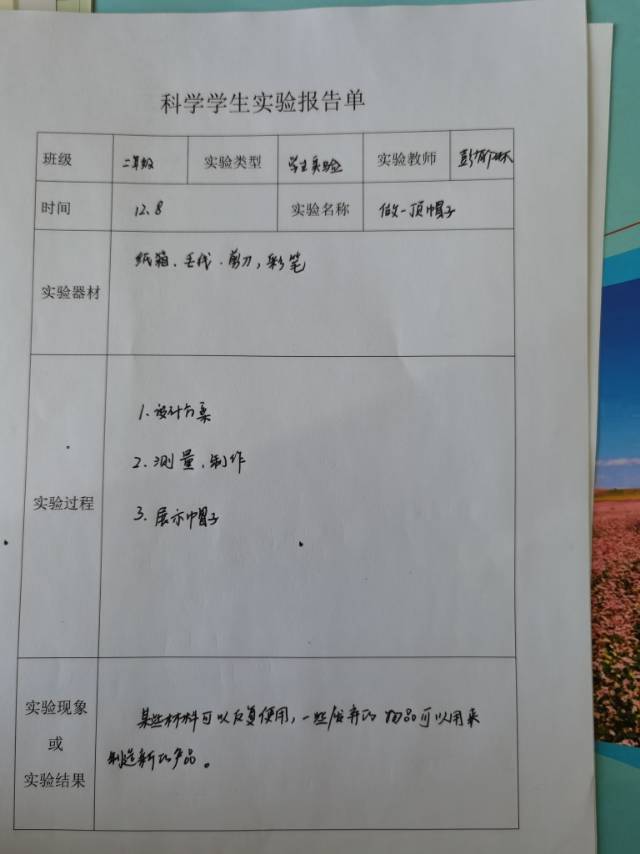 科学学生实验报告单
班级 二年级 实验类型 学生实验 实验教师 彭
时间 12.8 实验名称 做一顶帽子
实验器材 纸箱、毛线、剪刀,彩笔
实验过程
1.设计方案
2.测量、制作
3.展示帽子
实验现象
或
实验结果
某些材料可以反复使用,一些废弃的物品可以用来
制造新的产品。